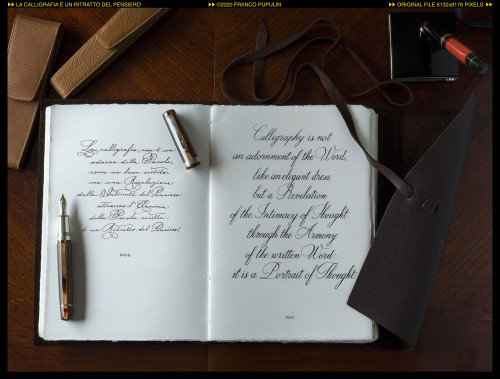 LA CALLIGRAFIA E UN RITRATTO DEL PENSIERO
©2020 FRANCO PUPULIN
ORIGINAL FILE 6132x8176 PIXELS
La calligrafia non è un
adorno della Parola,
come un bel vestito,
ma una Rivelazione
della Intimità del Pensiero
attraverso l'Armonia
della Parola scritta:
è un Ritratto del Pensiero.
Calligraphy is not
an adornment of the Word,
like an elegant dress,
but a Revelation
of the Intimacy of Thought
through the Armony
of the written Word:
it is a Portrait of Thought.